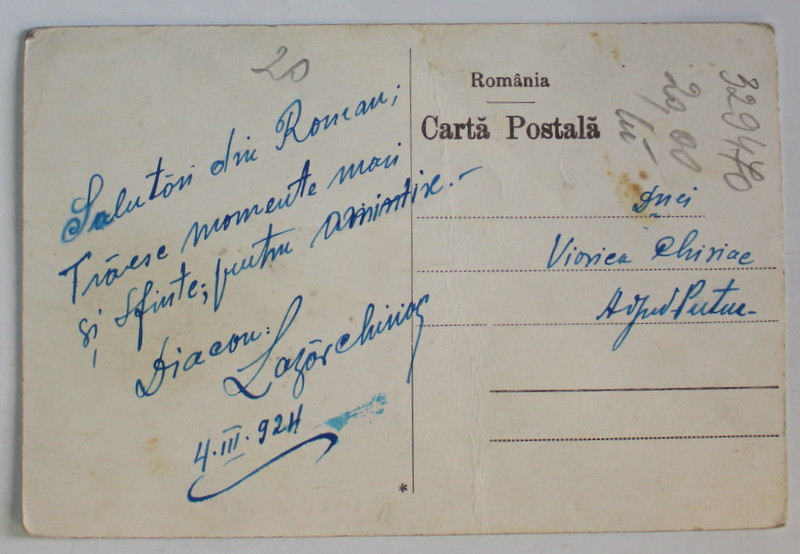 20
Salutări din Roman;
Trăesc momente mari
și sfinte; pentru amintire.-
Diacon:
Lazăr Chiriac
4.III.924
România
Cartă Postală
329470
20,00
lei
Dnei
Viorica Chiriac
Adjud-Putna-
*